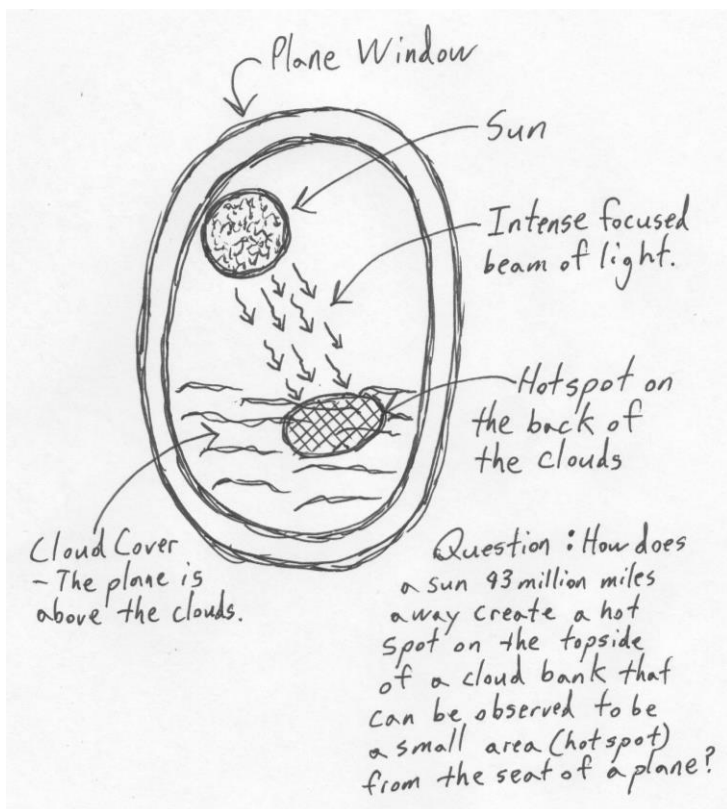 Plane Window
Sun
Intense focused
beam of light.
Hotspot on
the back of
the clouds
Cloud Cover
- The plane is
above the clouds.
Question : How does
a sun 93 million miles
away create a hot
spot on the topside
of a cloud bank that
can be observed to be
a small area (hotspot)
from the seat of a plane?